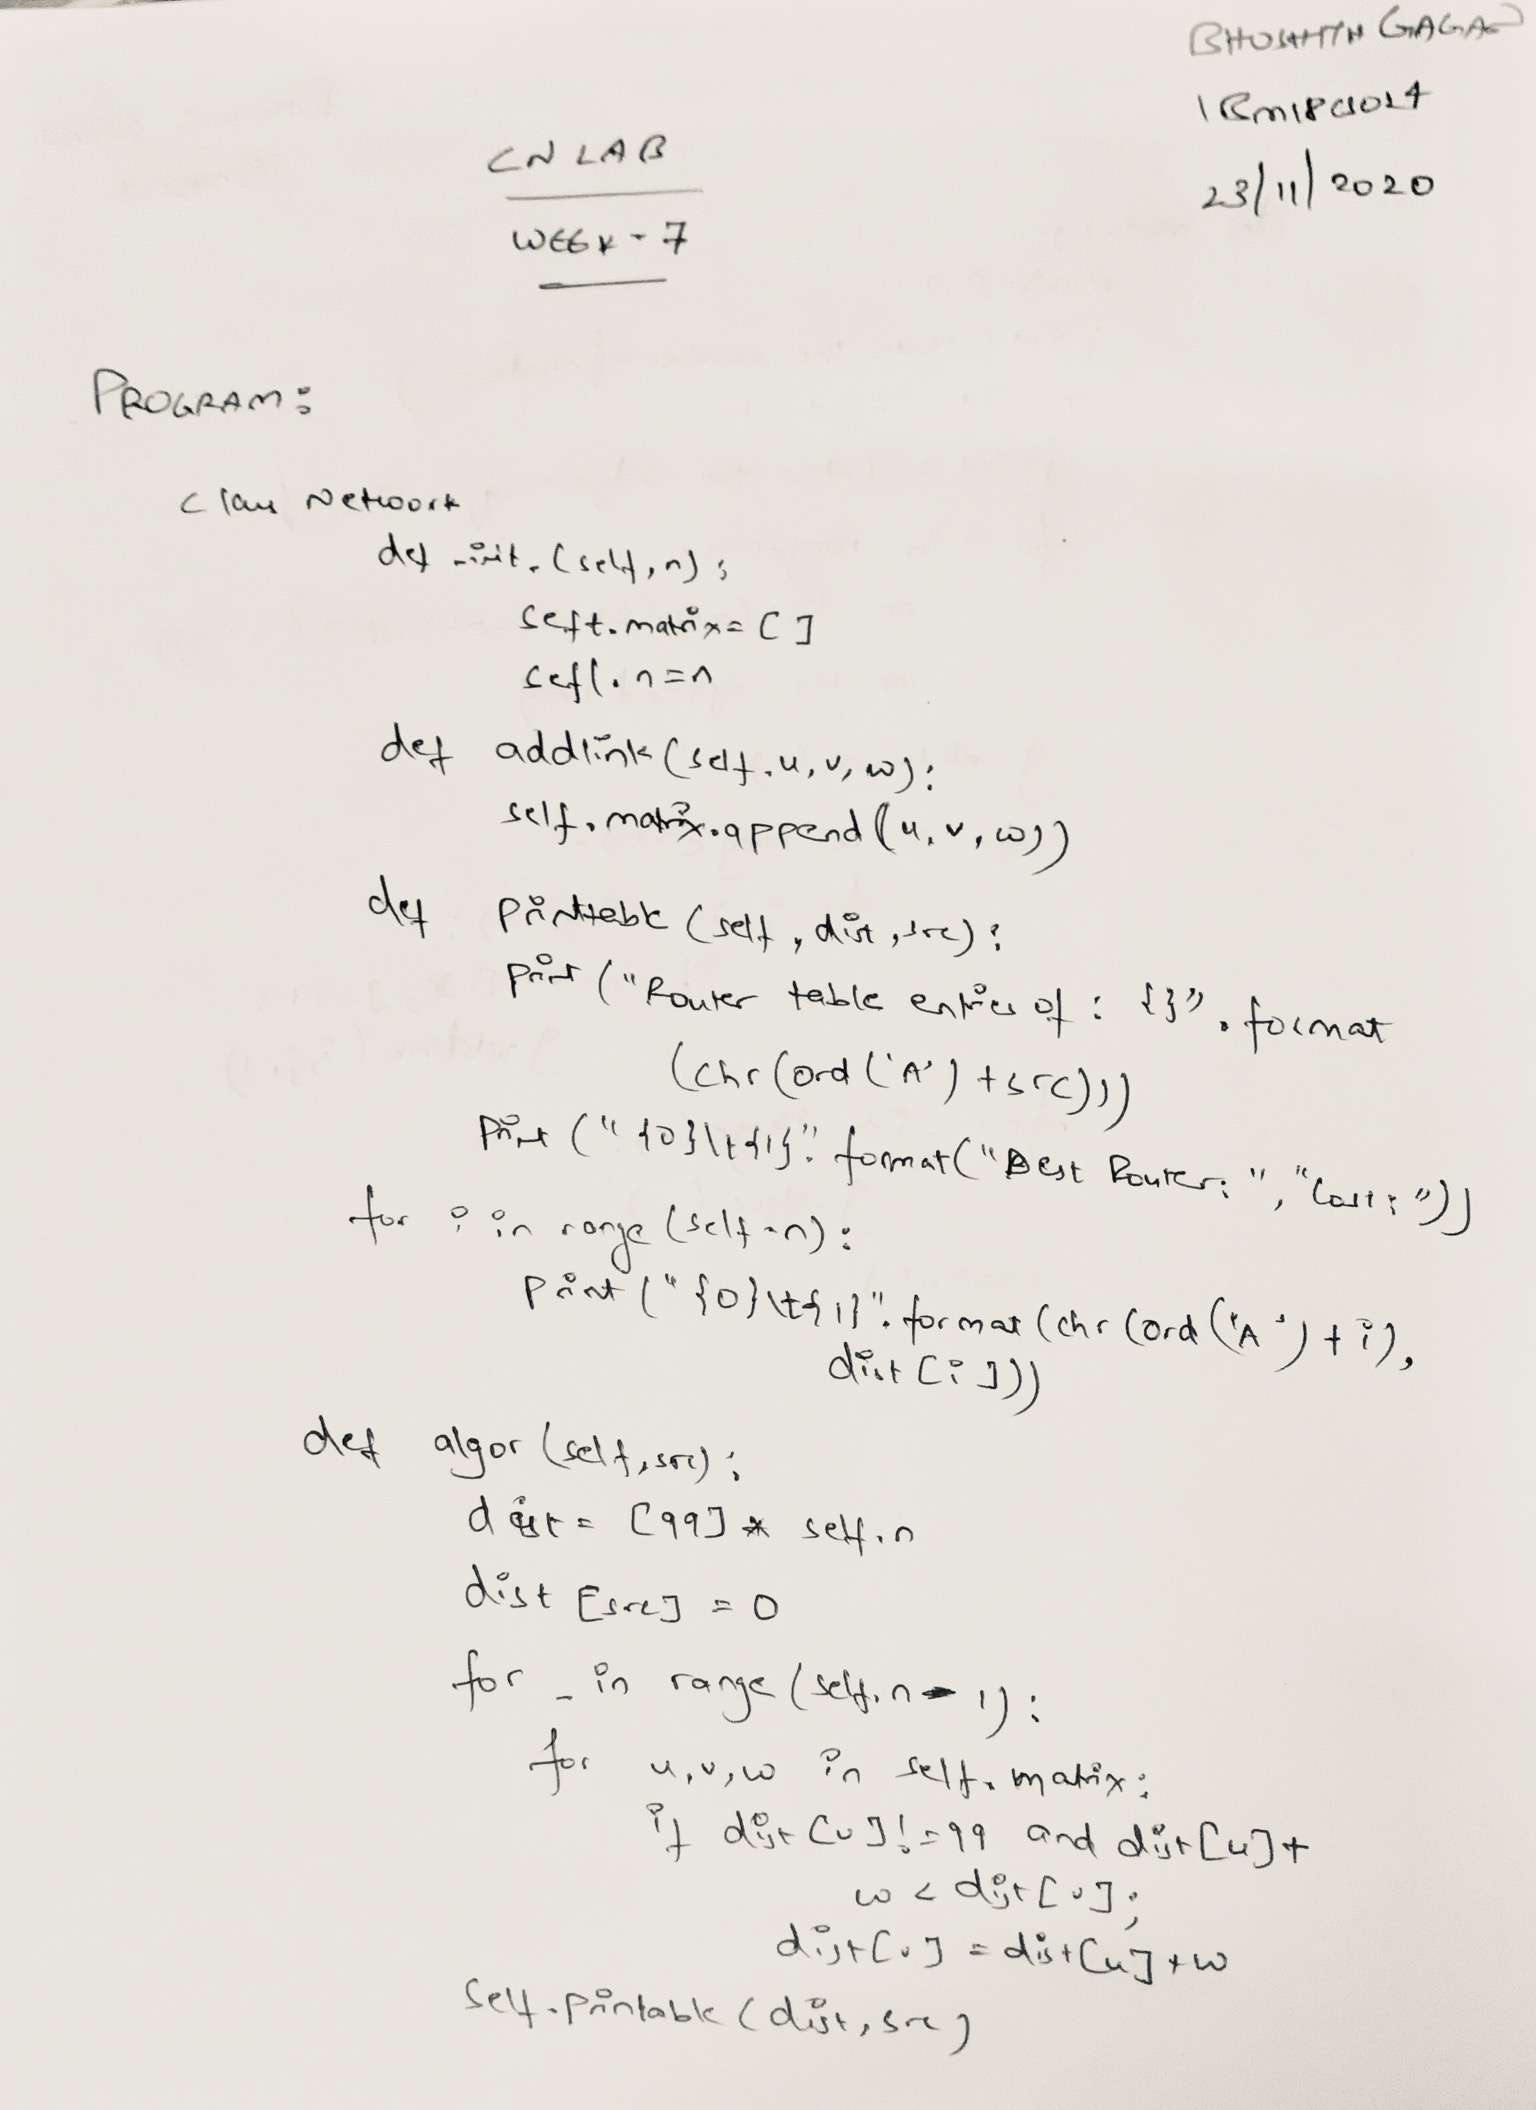 BHUSHITH GAGAN
1Bm18CS024
23/11/2020
CN LAB
WEEK-7
PROGRAM:
Class Network
def _init_(self,n):
self.matrix=[]
self.n=n
def addlink(self,u,v,w):
self.matrix.append((u,v,w))
def printtable(self,dist,src):
print("Router table entries of : {}".format
(chr(ord('A')+src)))
Print("{0}\t{1}".format("Best Router:","Cost:"))
for i in range(self.n):
Print("{0}\t{1}".format(chr(ord('A')+i),
dist[i]))
def algor(self,src):
dist= [99]* self.n
dist [src] = 0
for _ in range(self.n-1):
for u,v,w in self.matrix:
if dist[u]!=99 and dist[u]+
w < dist[v]:
dist[v] = dist[u]+w
Self.printable(dist,src)